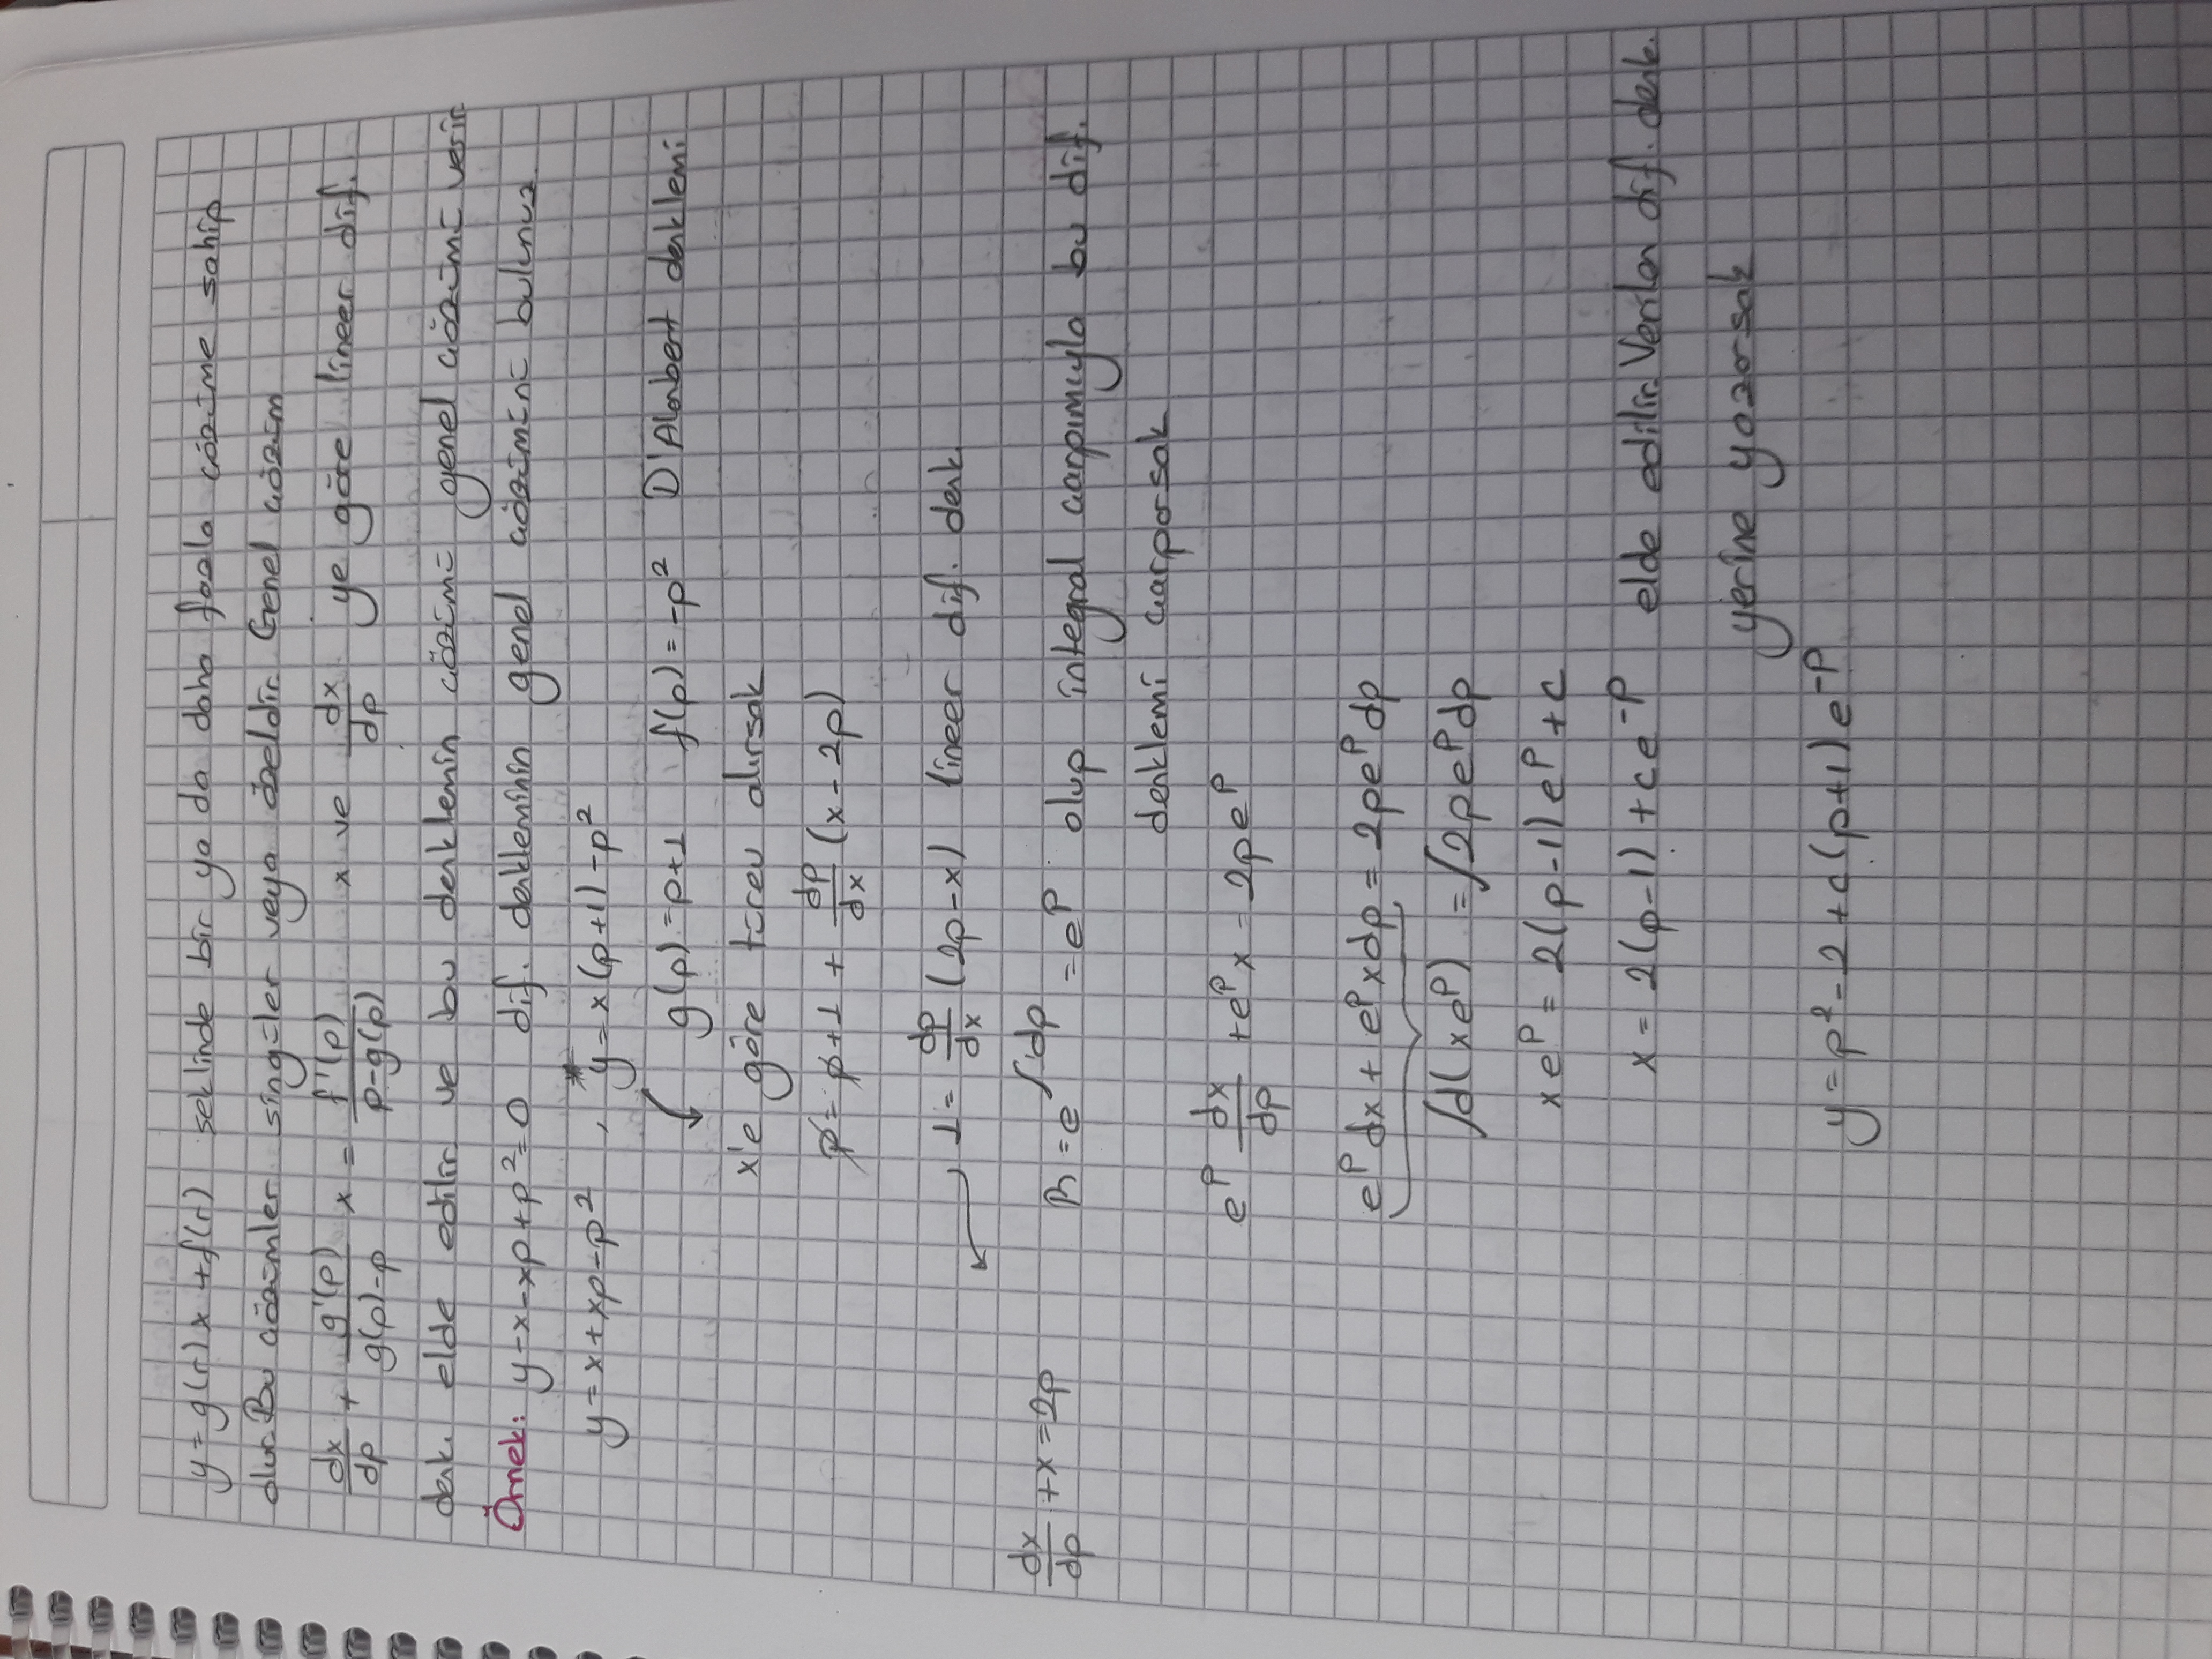 y = g(r)x + f(r) şeklinde bir ya da daha fazla çözüme sahip
olur. Bu çözümler singüler veya özeldir. Genel çözüm
dx/dp + g'(p)/(g(p)-p) x = f'(p)/(p-g(p)) x ve dx/dp ye göre lineer dif.
denk. elde edilir ve bu denklemin çözümü genel çözümü verir
Örnek: y-x-xp+p²=0 dif. denkleminin genel çözümünü bulunuz.
y=x+xp-p² , y=x(p+1)-p²
g(p)=p+1 f(p)=-p² D'Alembert denklemi
x'e göre türev alırsak
p = p+1 + dp/dx (x-2p)
1 = dp/dx (2p-x) lineer dif. denk.
dx/dp + x = 2p
= e^∫1dp = e^p olup integral çarpımıyla bu dif.
denklemi çarparsak
e^p dx/dp + e^p x = 2pe^p
e^p dx + e^p x dp = 2pe^p dp
∫d(xe^p) = ∫2pe^p dp
xe^p = 2(p-1)e^p + c
x = 2(p-1) + ce^-p elde edilir. Verilen dif. denk.
yerine yazarsak
y = p²-2+c(p+1)e^-p